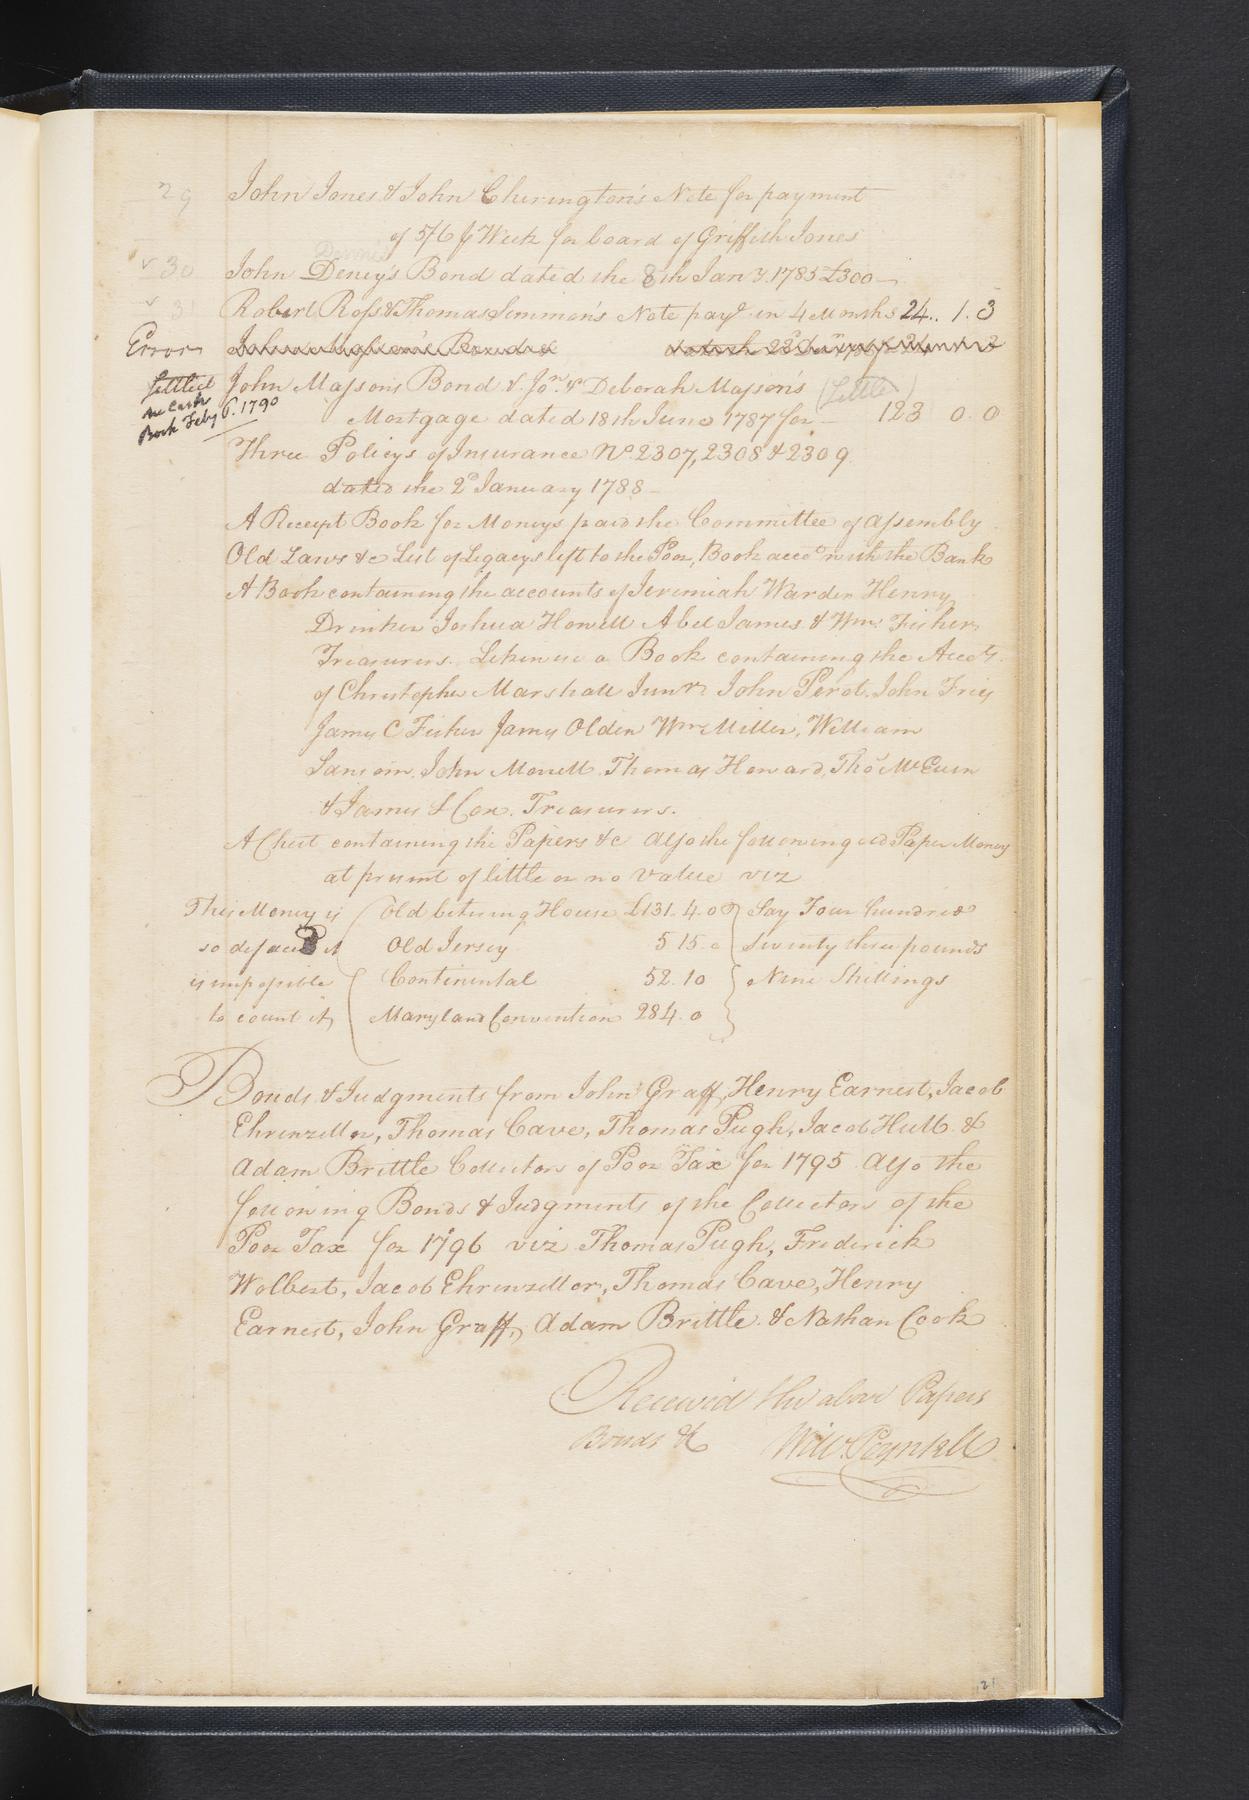 29 John Jones & John Cherington's Note for payment
of 5/6 ℔ Week for board of Griffith Jones
30 John Deney's Bond dated the 8th Jany. 1785 £300—
31 Robert Ross & Thomas Simmon's Note payᵈ in 4 Months 24.. 1. 3
Error John Bond &
Settled John Masson's Bond & Joⁿ. & Deborah Masson's (Settled)
see Cash
Book Feby 6. 1790
Mortgage dated 18th June 1787 for — 123 0. 0
Three Policys of Insurance Nº. 2307, 2308 & 2309
dated the 2ᵈ January 1788—
A Receipt Book for Moneys paid the Committee of Assembly
Old Laws &c List of Legacys left to the Poor, Book accoᵗ with the Bank
A Book containing the accounts of Jeremiah Warder Henry
Drinker Joshua Howell Abel James & Wm. Fisher
Treasurers. Likewise a Book containing the Accots.
of Christopher Marshall Junr. John Perot. John Fries
James C Fisher James Olden Wm Miller, William
Sansom, John Morrell Thomas Howard, Thoˢ McEuen
& James S Cox. Treasurers.
A Chest containing the Papers &c also the following old Paper Money
at present of little or no Value viz
This Money is Old bettering House £131. 4. 0 Say Four hundred
so defaced it Old Jersey 5 15. 0 Seventy three pounds
is impossible Continental 52. 10 Nine Shillings
to count it, Maryland Convention 284. 0
Bonds & Judgments from John Graff, Henry Earnest, Jacob
Ehrenzeller, Thomas Cave, Thomas Pugh, Jacob Hutt &
Adam Brittle Collectors of Poor Tax for 1795 also the
following Bonds & Judgments of the Collectors of the
Poor Tax for 1796 viz Thomas Pugh, Frederick
Wolbert, Jacob Ehrenzeller, Thomas Cave, Henry
Earnest, John Graff, Adam Brittle & Nathan Cook
Received the above Papers
Bonds &c
21